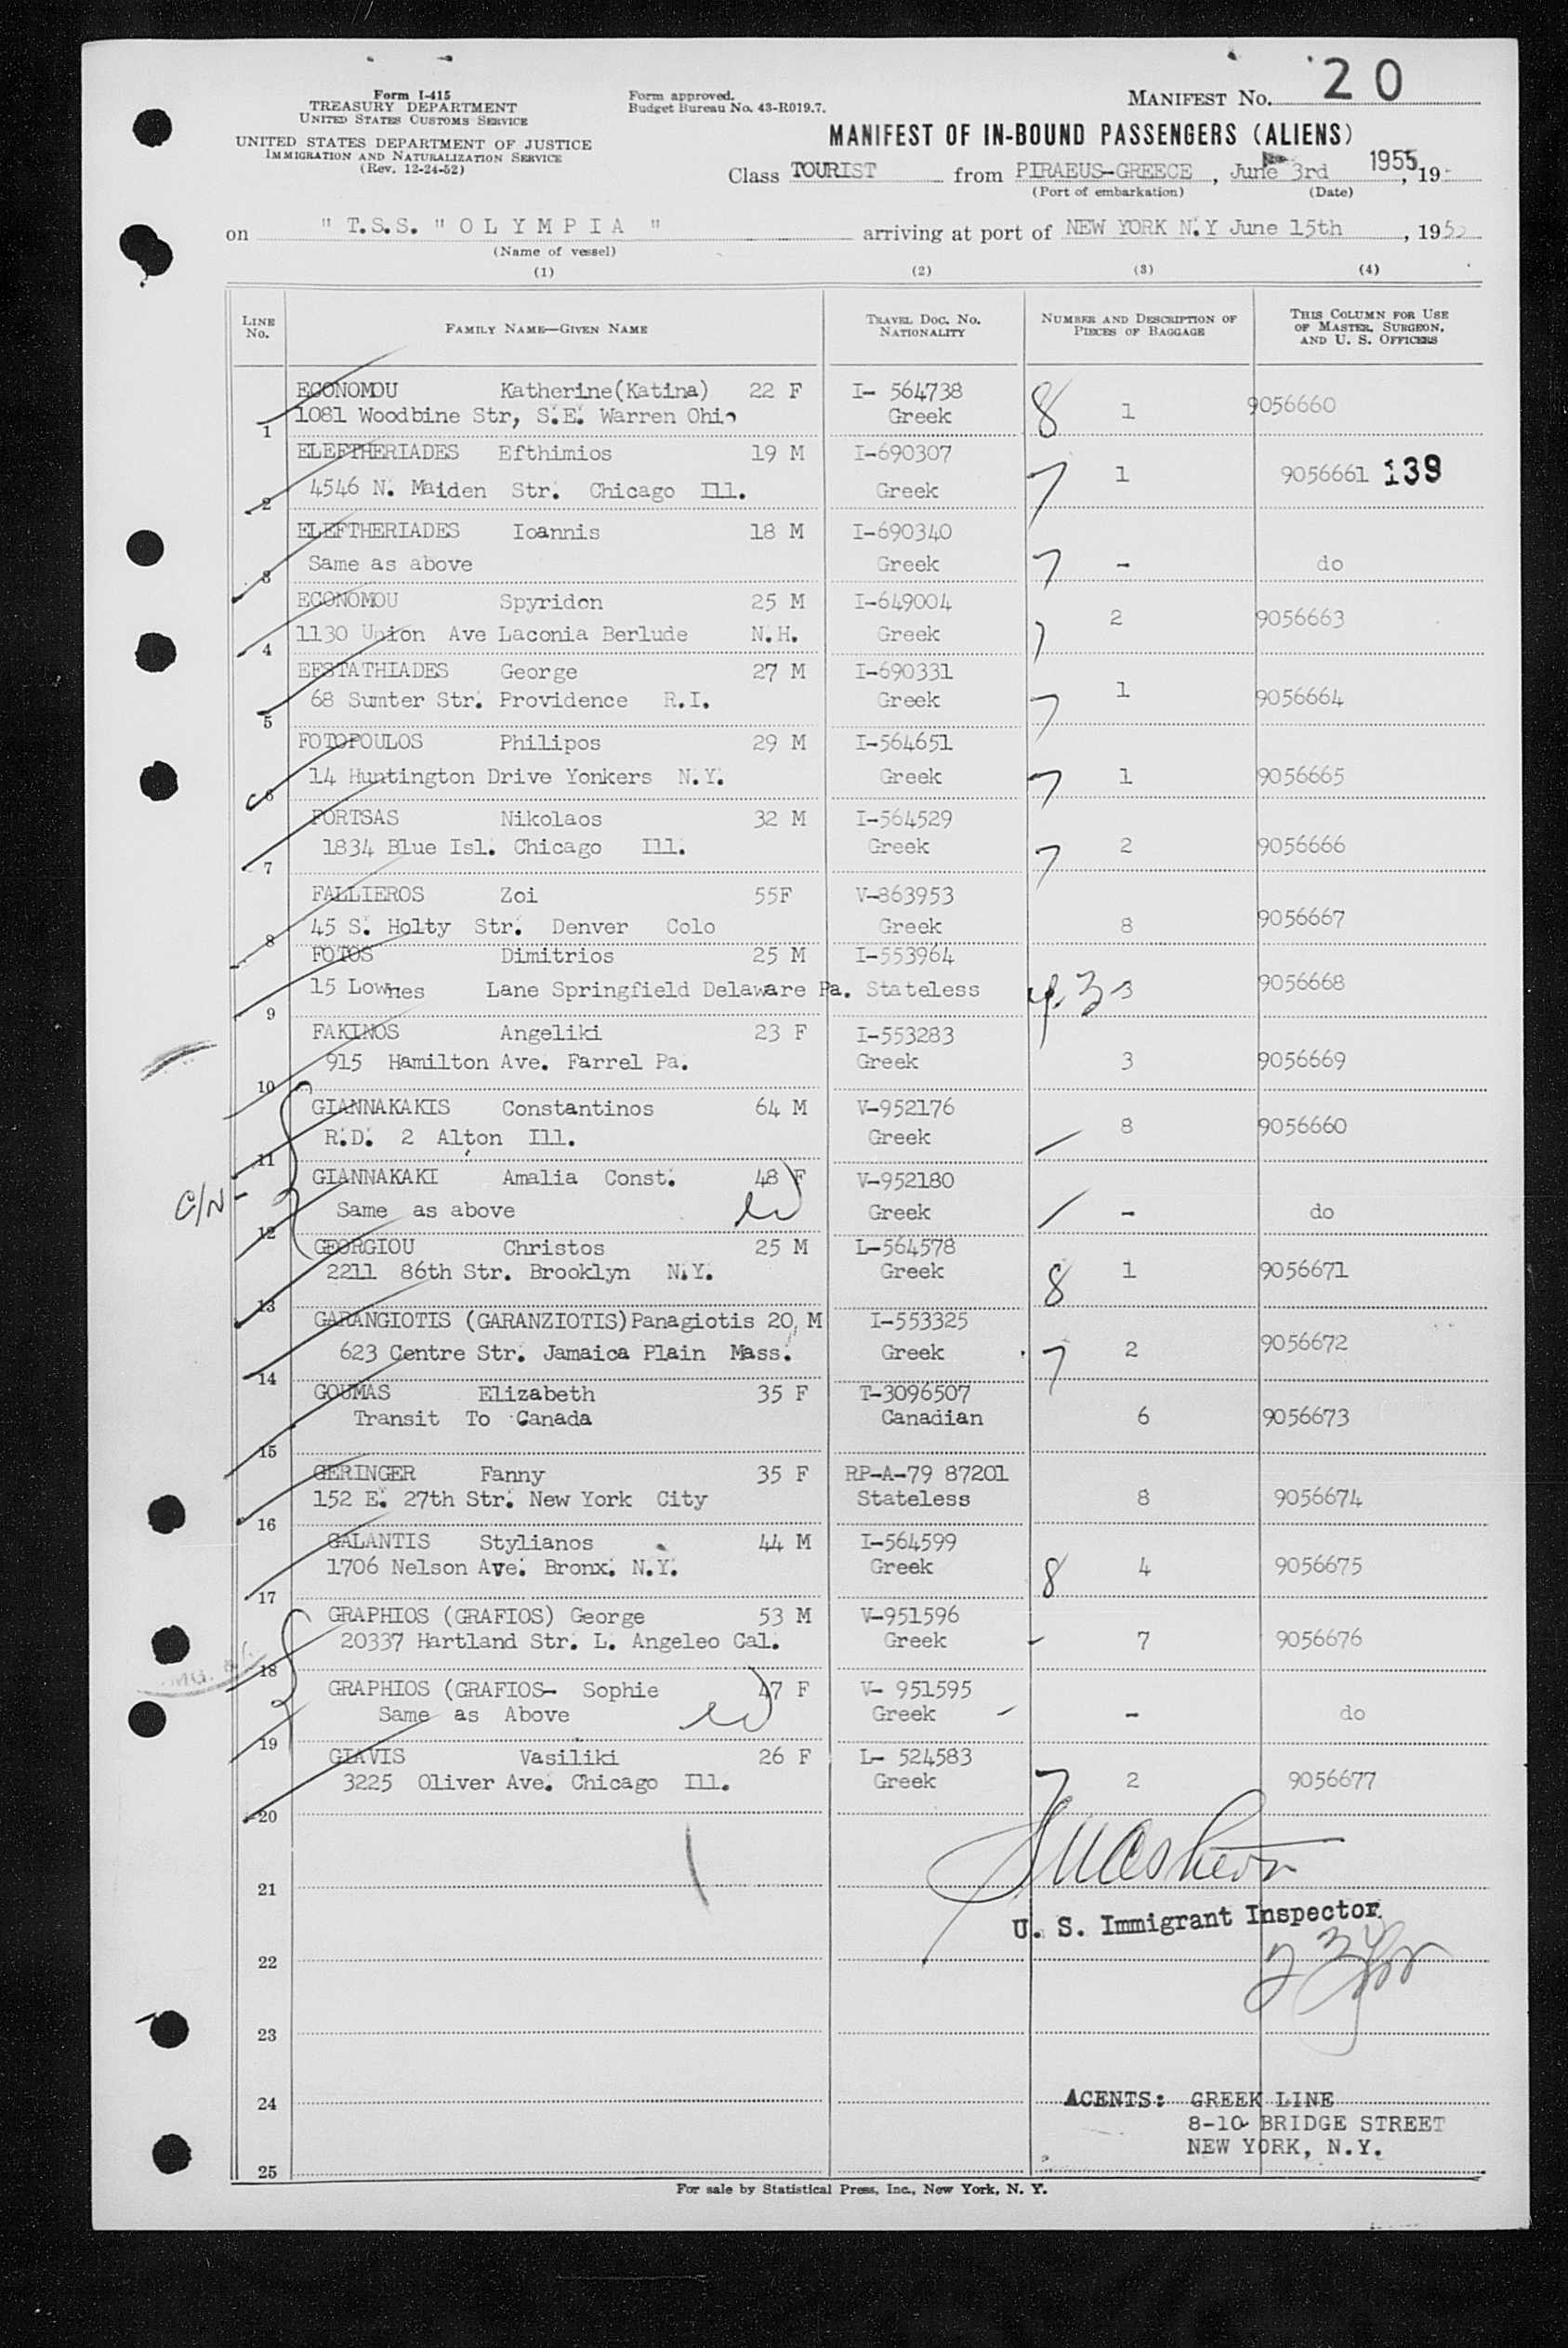 20
Form I-415
TREASURY DEPARTMENT
UNITED STATES CUSTOMS SERVICE
UNITED STATES DEPARTMENT OF JUSTICE
IMMIGRATION AND NATURALIZATION SERVICE
(Rev. 12-24-52)
Form approved.
Budget Bureau No. 43-R019.7.
MANIFEST No.
MANIFEST OF IN-BOUND PASSENGERS (ALIENS)
Class TOURIST from PIRAEUS-GREECE, June 3rd 1955, 19
(Port of embarkation) (Date)
on " T.S.S. " O L Y M P I A " arriving at port of NEW YORK N.Y June 15th, 195
(Name of vessel)
(1) (2) (3) (4)
LINE No. FAMILY NAME—GIVEN NAME TRAVEL DOC. NO. NATIONALITY NUMBER AND DESCRIPTION OF PIECES OF BAGGAGE THIS COLUMN FOR USE OF MASTER, SURGEON, AND U. S. OFFICERS
ECONOMOU Katherine(Katina) 22 F I- 564738
1 1081 Woodbine Str, S.E. Warren Ohio Greek 8 1 9056660
ELEFTHERIADES Efthimios 19 M I-690307
2 4546 N. Maiden Str. Chicago Ill. Greek 7 1 9056661 139
ELEFTHERIADES Ioannis 18 M I-690340
3 Same as above Greek 7 - do
ECONOMOU Spyridon 25 M I-649004
4 1130 Union Ave Laconia Berlude N.H. Greek 7 2 9056663
EFSTATHIADES George 27 M I-690331
5 68 Sumter Str. Providence R.I. Greek 7 1 9056664
FOTOPOULOS Philipos 29 M I-564651
6 14 Huntington Drive Yonkers N.Y. Greek 7 1 9056665
FORTSAS Nikolaos 32 M I-564529
7 1834 Blue Isl. Chicago Ill. Greek 7 2 9056666
FALLIEROS Zoi 55F V-863953
8 45 S. Holty Str. Denver Colo Greek 8 9056667
FOTOS Dimitrios 25 M I-553964
9 15 Lownes Lane Springfield Delaware Pa. Stateless 3 3 9056668
FAKINOS Angeliki 23 F I-553283
10 915 Hamilton Ave. Farrel Pa. Greek 3 9056669
GIANNAKAKIS Constantinos 64 M V-952176
11 R.D. 2 Alton Ill. Greek 8 9056660
GIANNAKAKI Amalia Const. 48 F V-952180
C/N
12 Same as above Greek - do
GEORGIOU Christos 25 M L-564578
13 2211 86th Str. Brooklyn N.Y. Greek 8 1 9056671
GARANGIOTIS (GARANZIOTIS)Panagiotis 20 M I-553325
14 623 Centre Str. Jamaica Plain Mass. Greek 7 2 9056672
GOUMAS Elizabeth 35 F T-3096507
15 Transit To Canada Canadian 6 9056673
GERINGER Fanny 35 F RP-A-79 87201
16 152 E. 27th Str. New York City Stateless 8 9056674
GALANTIS Stylianos 44 M I-564599
17 1706 Nelson Ave. Bronx. N.Y. Greek 8 4 9056675
GRAPHIOS (GRAFIOS) George 53 M V-951596
18 20337 Hartland Str. L. Angeleo Cal. Greek - 7 9056676
GRAPHIOS (GRAFIOS- Sophie 47 F V- 951595
19 Same as Above Greek - - do
GIAVIS Vasiliki 26 F L- 524583
20 3225 Oliver Ave. Chicago Ill. Greek 7 2 9056677
21
U. S. Immigrant Inspector
22
23
24
AGENTS: GREEK LINE
8-10 BRIDGE STREET
NEW YORK, N.Y.
25
For sale by Statistical Press, Inc., New York, N. Y.